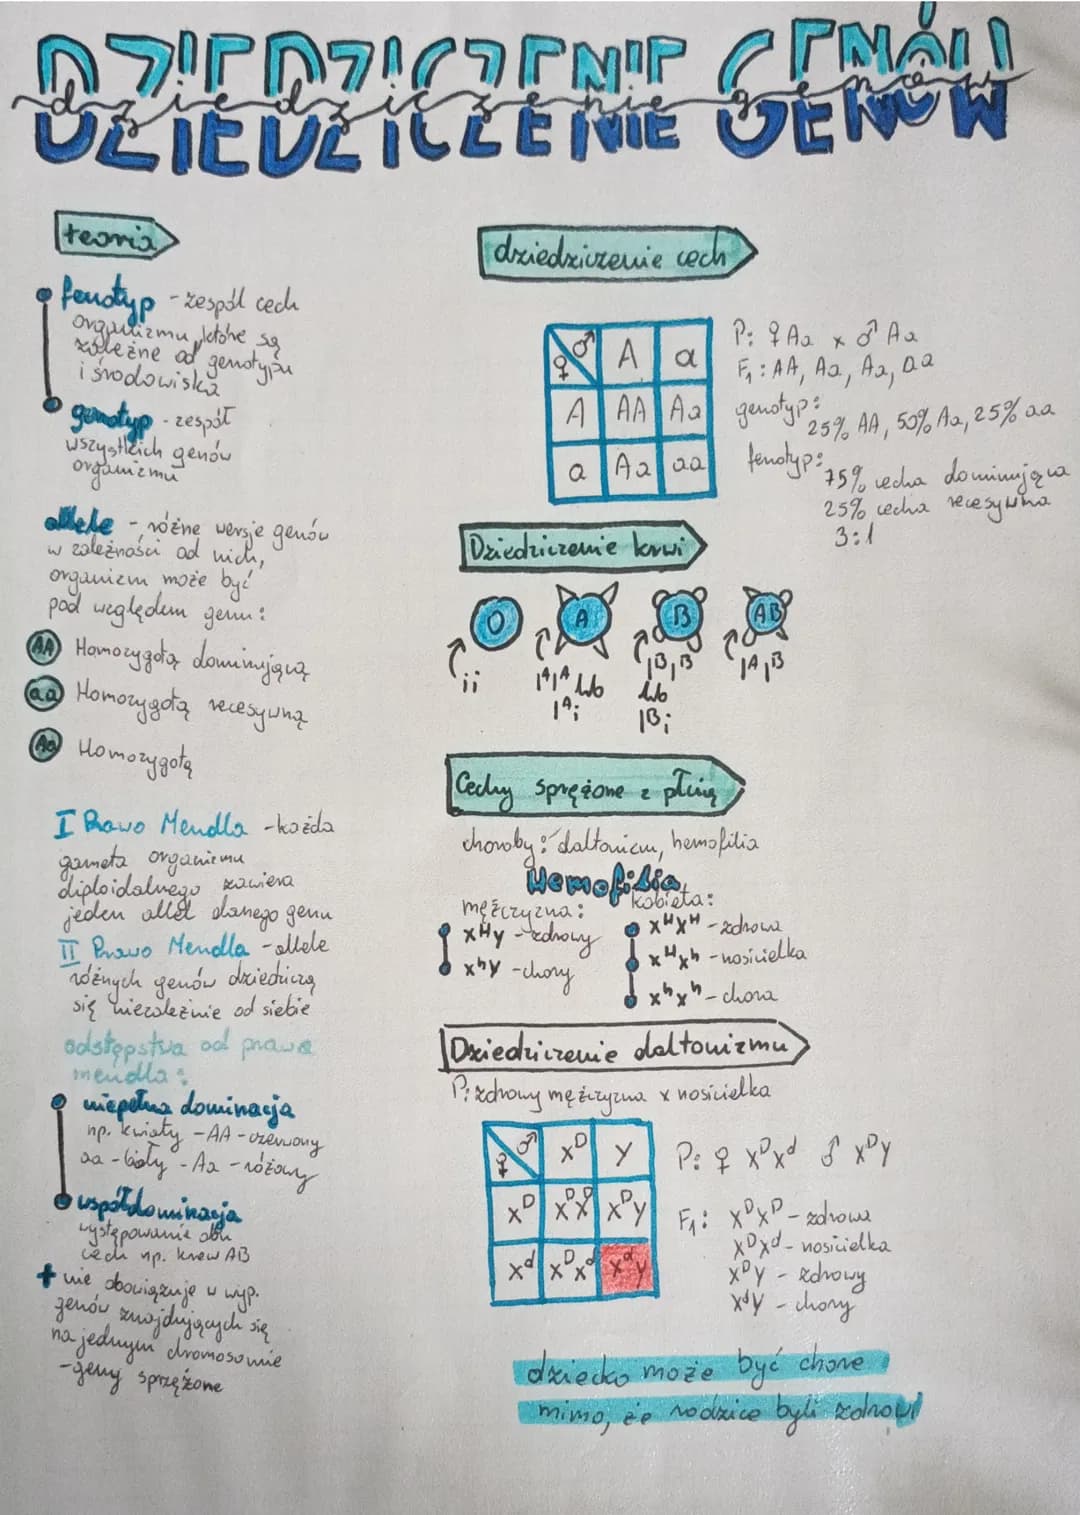 DZIEDZICZENIE GENÓW
dziedziczenie genów
teoria
fenotyp - zespół cech
organizmu, które są
zależne od genotypu
i środowiska
genotyp - zespół
wszystkich genów
organizmu
allele - różne wersje genów
w zależności od nich,
organizm może być
pod względem genu:
AA Homozygotą dominującą
aa Homozygotą recesywną
Aa Homozygotą
I Prawo Mendla - każda
gameta organizmu
diploidalnego zawiera
jeden allel danego genu
II Prawo Mendla - allele
różnych genów dziedziczą
się niezależnie od siebie
odstępstwa od prawa
mendla:
niepełna dominacja
np. kwiaty - AA - czerwony
aa - biały - Aa - różowy
współdominacja
występowanie obu
cech np. krew AB
+ nie obowiązuje w wyp.
genów znajdujących się
na jednym chromosomie
- geny sprzężone
dziedziczenie cech
♀ ♂ A a
A AA Aa
a Aa aa
P: ♀ Aa x ♂ Aa
F₁: AA, Aa, Aa, aa
genotyp:
25% AA, 50% Aa, 25% aa
fenotyp:
75% cecha dominująca
25% cecha recesywna
3:1
Dziedziczenie krwi
O A B AB
ii
Iᴬ Iᴬ lub
Iᴬi
Iᴮ, Iᴮ
lub
Iᴮi
Iᴬ, Iᴮ
Cechy sprężone z płcią
choroby: daltonizm, hemofilia
Hemofilia
mężczyzna:
xᴴy - zdrowy
xʰy - chory
kobieta:
xᴴxᴴ - zdrowa
xᴴxʰ - nosicielka
xʰxʰ - chora
Dziedziczenie daltonizmu
P: zdrowy mężczyzna x nosicielka
♀ ♂ xᴰ y
xᴰ xᴰxᴰ xᴰy
xᵈ xᴰxᵈ xᵈy
P: ♀ xᴰxᵈ ♂ xᴰy
F₁: xᴰxᴰ - zdrowa
xᴰxᵈ - nosicielka
xᴰy - zdrowy
xᵈy - chory
dziecko może być chore
mimo, że rodzice byli zdrowi